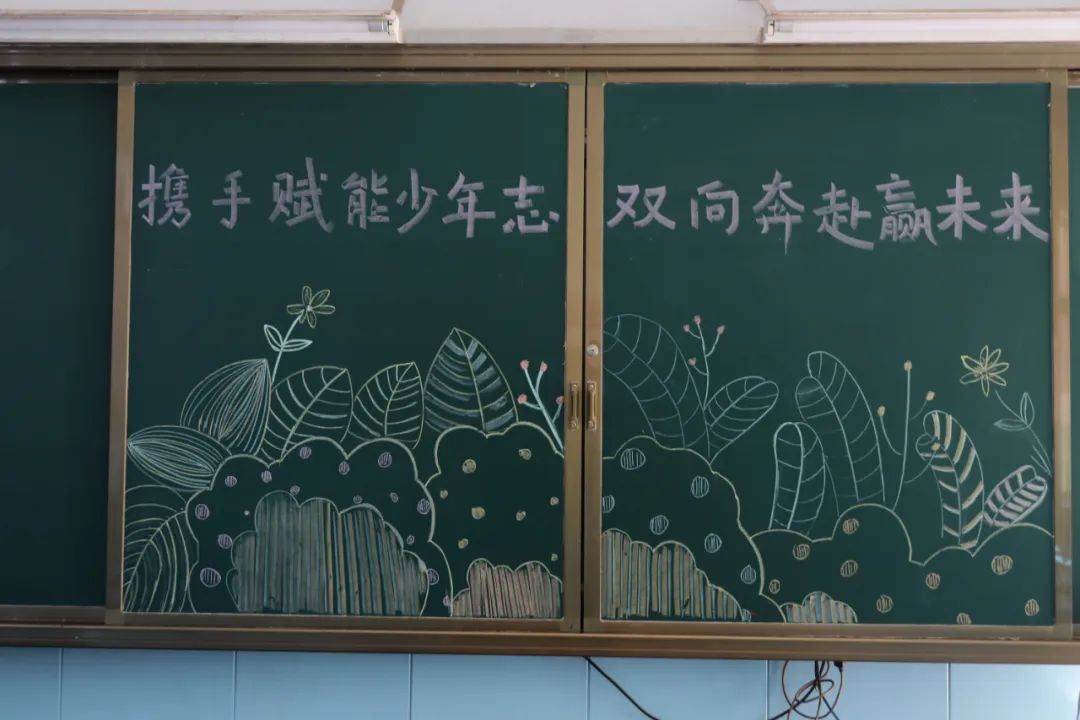 携手赋能少年志 双向奔赴赢未来